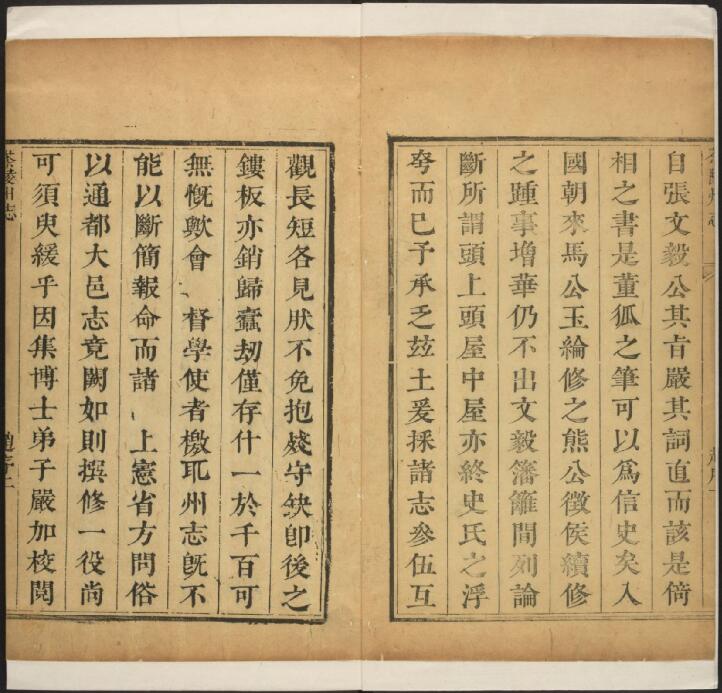 自張文毅公其旨嚴其詞直而該是倚
相之書是董狐之筆可以爲信史矣入
國朝來馬公玉綸修之熊公徵侯續修
之踵事增華仍不出文毅籓籬間列論
斷所謂頭上頭屋中屋亦終史氏之浮
夸而已予承乏玆土爰採諸志參伍互
觀長短各見狀不免抱殘守缺卽後之
鏤板亦銷歸蠹劫僅存什一於千百可
無慨歟會 督學使者檄取州志旣不
能以斷簡報命而諸 上憲省方問俗
以通都大邑志竟闕如則撰修一役尚
可須臾緩乎因集博士弟子嚴加校閱
茶陵州志